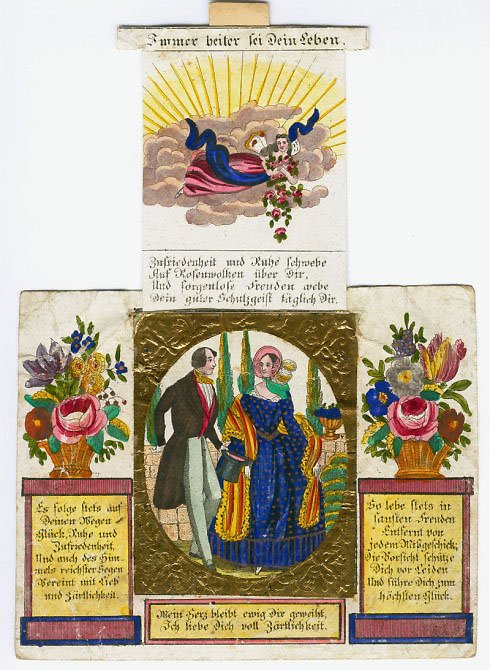 Immer heiter sei Dein Leben.
Zufriedenheit und Ruhe schwebe
Auf Rosenwolken über Dir,
Und sorgenlose Freuden webe
Dein guter Schutzgeist täglich Dir.
Es folge stets auf
Deinen Wegen
Glück, Ruhe und
Zufriedenheit,
Und auch des Him-
mels reichster Segen
Vereint mit Lieb
und Zärtlichkeit.
So lebe stets in
sanften Freuden
Entfernt von
jedem Mißgeschick;
Die Vorsicht schütze
Dich vor Leiden
Und führe Dich zum
höchsten Glück.
Mein Herz bleibt ewig Dir geweiht,
Ich liebe Dich voll Zärtlichkeit.